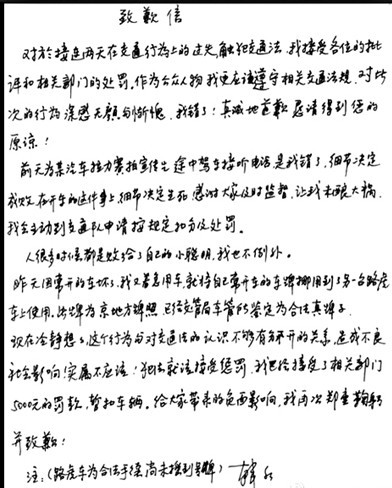 致歉信
对于接连两天在交通行为上的过失，触犯交通法，我接受各位的批
评和相关部门的处罚。作为公众人物我更应该遵守相关交通法规，对此
次的行为深感无颜与惭愧，我错了！真诚地道歉恳请得到您的
原谅！
前天为某汽车接力赛拍宣传片途中驾车接听电话是我错了，细节决定
成败，在开车的这件事上，细节决定生死，感谢大家及时监督，让我未酿大祸，
我会主动到交通队申请按规定扣分及处罚。
人很多时候都是败给了自己的小聪明，我也不例外。
昨天因常开的车坏了，我又着急用车，就将自己常开车的车牌挪用到了另一台路虎
车上使用。此牌为京地方牌照，已经交管局车管所鉴定为合法真牌子。
现在冷静想想，这个行为与对交通法的认识不够有分不开的关系，造成不良
社会影响！实属不应该！犯法就该接受惩罚，我已经接受了相关部门
5000元的罚款，暂扣车辆。给大家带来的负面影响，我再次郑重鞠躬
并致歉！
注：（路虎车为合法手续尚未挂到号牌）